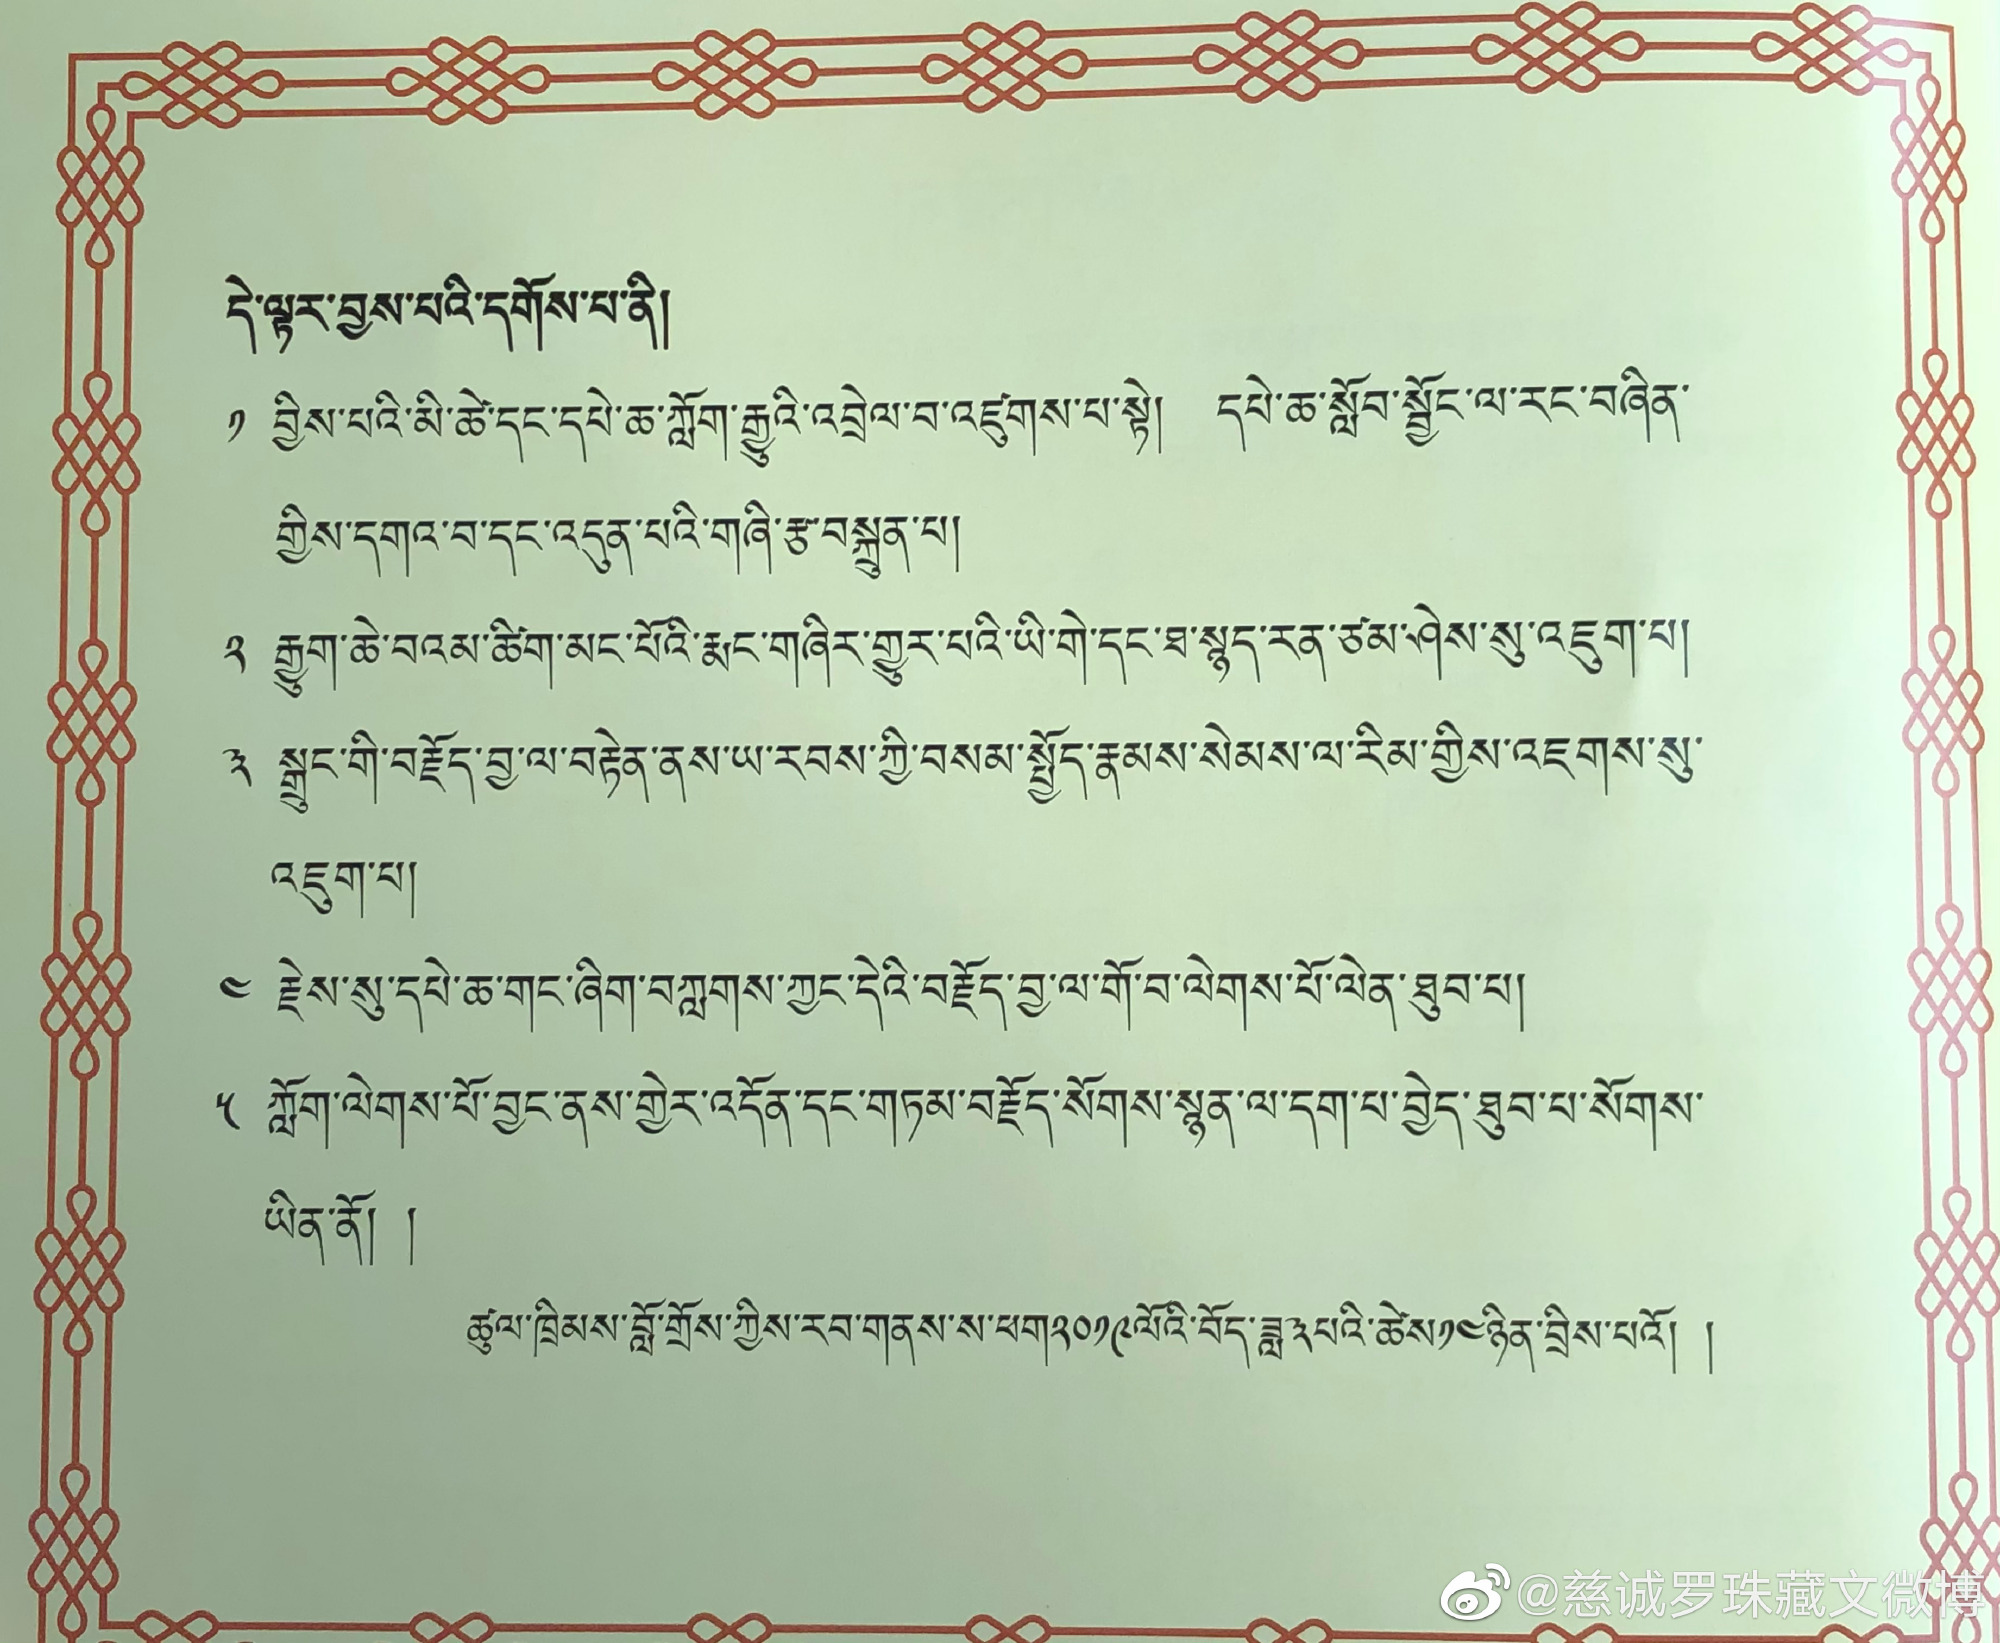 དེ་ལྟར་བྱས་པའི་དགོས་པ་ནི།
༡ བྱིས་པའི་མི་ཚེ་དང་དཔེ་ཆ་ཀློག་རྒྱུའི་འབྲེལ་བ་འཛུགས་པ་སྟེ། དཔེ་ཆ་སློབ་སྦྱོང་ལ་རང་བཞིན་
གྱིས་དགའ་བ་དང་འདུན་པའི་གཞི་རྩ་བསྐྲུན་པ།
༢ རྒྱུག་ཆེ་བའམ་ཚིག་མང་པོའི་རྨང་གཞིར་གྱུར་པའི་ཡི་གེ་དང་ཐ་སྙད་རན་ཙམ་ཤེས་སུ་འཇུག་པ།
༣ སྒྲུང་གི་བརྗོད་བྱ་ལ་བརྟེན་ནས་ཡ་རབས་ཀྱི་བསམ་སྤྱོད་རྣམས་སེམས་ལ་རིམ་གྱིས་འཇགས་སུ་
འཇུག་པ།
༤ རྗེས་སུ་དཔེ་ཆ་གང་ཞིག་བཀླགས་ཀྱང་དེའི་བརྗོད་བྱ་ལ་གོ་བ་ལེགས་པོ་ལེན་ཐུབ་པ།
༥ ཀློག་ལེགས་པོ་བྱང་ནས་གྱེར་འདོན་དང་གཏམ་བརྗོད་སོགས་སྙན་ལ་དག་པ་བྱེད་ཐུབ་པ་སོགས་
ཡིན་ནོ། །
ཚུལ་ཁྲིམས་བློ་གྲོས་ཀྱིས་རབ་གནས་ས་ཕག༢༠༡༩ལོའི་བོད་ཟླ༣པའི་ཚེས༡༤ཉིན་བྲིས་པའོ། །
@慈诚罗珠藏文微博